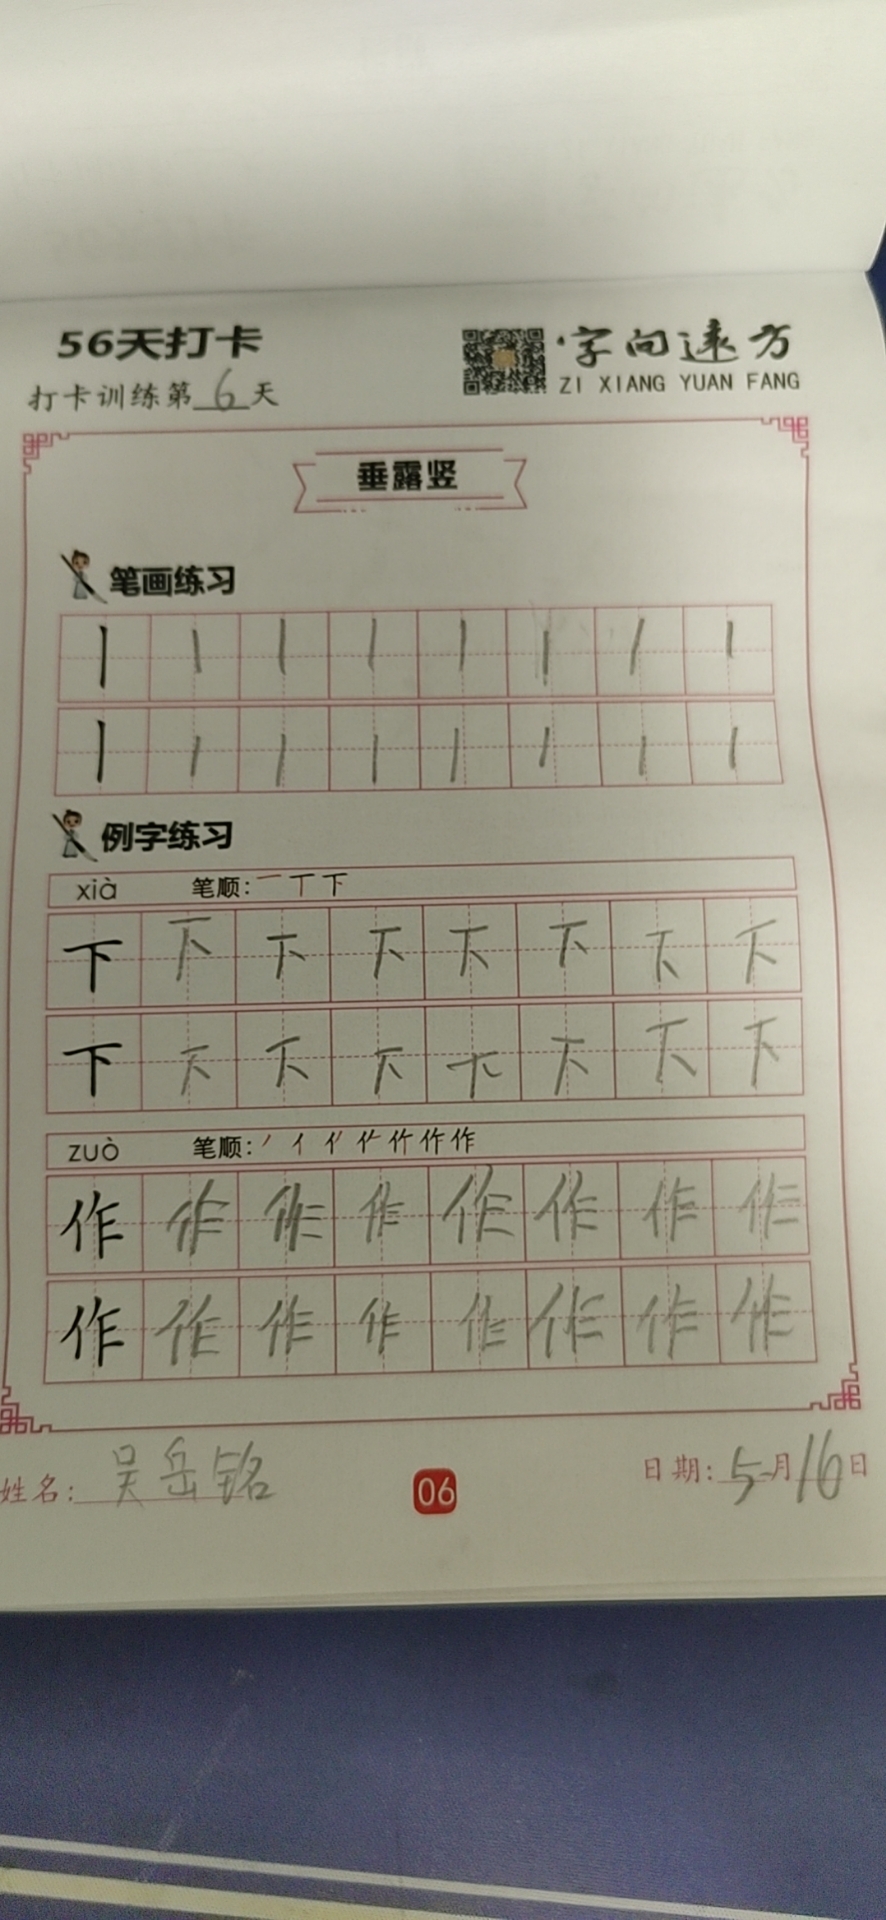 56天打卡
字向远方
打卡训练第6天
ZI XIANG YUAN FANG
垂露竖
笔画练习
丨 丨 丨 丨 丨 丨 丨 丨
丨 丨 丨 丨 丨 丨 丨 丨
例字练习
xià 笔顺: 一 丅 下
下 下 下 下 下 下 下 下
下 下 下 下 下 下 下 下
zuò 笔顺: 丿 亻 作 作
作 作 作 作 作 作 作 作
作 作 作 作 作 作 作 作
姓名: 吴岳铭
06
日期: 5月16日